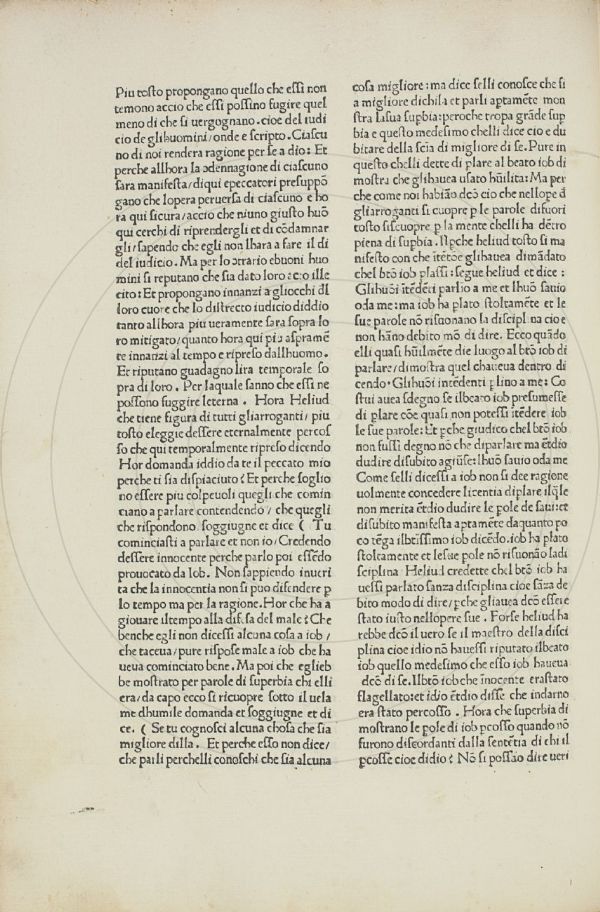 Piu tosto propongano quello che essi non
temono accio che essi possino fugire quel
meno di che si uergognano.cioe del iudi
cio de glihuomini/onde e scripto.Ciascu
no di noi rendera ragione per se a dio: Et
perche allhora la ɔdennagione di ciascuno
sara manifesta/di qui epeccatori presuppō
gano che lopera peruersa di ciascuno e ho
ra qui sicura/accio che niuno giusto huō
qui cerchi di riprendergli et di cōdamnar
gli/sapendo che egli non lhara a fare il di
del iudicio. Ma per lo ɔtrario ebuoni huo
mini si reputano che sia dato loro accio ille
cito: Et propongano innanzi a gliocchi dl
loro cuore che lo distrecto iudicio diddio
tanto allhora piu ueramente sara sopra lo
ro mitigato/quanto hora qui piu aspramē
te innanzi al tempo e ripreso dallhuomo.
Et riputano guadagno lira temporale so
pra di loro. Per laquale sanno che essi ne
possono fuggire leterna. Hora Heliud
che tiene figura di tutti gliarroganti/ piu
tosto eleggie dessere eternalmente percos
so che qui temporalmente ripreso dicendo
Hor domanda iddio da te il peccato mio
perche ti sia dispiaciuto? Et perche soglio
no essere piu colpeuoli quegli che comin
ciano a parlare contendendo/ che quegli
che rispondono soggiugne et dice ( Tu
cominciasti a parlare et non io/Credendo
dessere innocente perche parlo poi essēdo
prouocato da Iob. Non sappiendo inueri
ta che la innocentia non si puo difendere p
lo tempo ma per la ragione.Hor che ha a
giouare iltempo alla difesa del male? Che
benche egli non dicessi alcuna cosa a iob/
che taceua/pure rispose male a iob che ha
ueua cominciato bene. Ma poi che eglieb
be mostrato per parole di superbia chi elli
era/da capo ecco si ricuopre sotto il uela
me dhumile domanda et soggiugne et di
ce. ( Se tu cognosci alcuna chosa che sia
migliore dilla. Et perche esso non dice/
che parli perchelli conoschi che sia alcuna
cosa migliore:ma dice selli conosce che si
a migliore dichila et parli aptamēte mon
stra lasua supbia:peroche tropa grāde sup
bia e questo medesimo chelli dice cio e du
bitare della sciā di migliore di se.Pure in
questo chelli dette di plare al beato iob di
mostra che glihauea usato hūilita: Ma per
che come noi habiāo dcō cio che nellope d
gliarroganti si cuopre p le parole difuori
tosto siscuopre p la mente chelli ha dētro
piena di supbia. Npche heliud tosto si ma
nifesto con che itētōe glihauea dimādato
chel btō iob plassi:segue heliud et dice :
Glihuōi itēdēti parlio a me et lhuō sauio
oda me:ma iob ha plato stoltamēte et le
sue parole nō risuonano la disciplina cioe
non hāno debito mō di dire. Ecco quādo
elli quasi hūilmēte die luogo al btō iob di
parlare/dimostra quel chaueua dentro di
cendo.Glihuōi intēdenti plino a me: Co
stui auea sdegno se ilbeato iob presumesse
di plare cōe quasi non potessi itēdere iob
le sue parole: Et pche giudico chel btō iob
non fussi degno nō che diparlare ma ētdio
dudire disubito agiūse:lhuō sauio oda me
Come selli dicessi a iob non si dee ragione
uolmente concedere licentia diplare ilqle
non merita ētdio dudire le pole de saui:et
disubito manifesta aptamēte daquanto po
co tēga ilbtissimo iob dicēdo.iob ha plato
stoltamente et lesue pole nō risuonāo ladi
sciplina Heliud credette chel btō iob ha
uessi parlato sanza disciplina cioe sāza de
bito modo di dire/pche gliauea dcō essere
stato iusto nellopere sue . Forse heliud ha
rebbe dcō il uero se il maestro della disci
plina cioe idio nō hauessi riputato ilbeato
iob quello medesimo che esso iob haueua
dcō di se.Ilbtō iob che ínocente erastato
flagellato:et idio ētdio disse che indarno
era stato percosso . Hora che superbia di
mostrano le pole di iob pcosso quando nō
furono discordanti dalla sentētia di chi il
pcosse cioe didio? Nō si possāo dire ueri